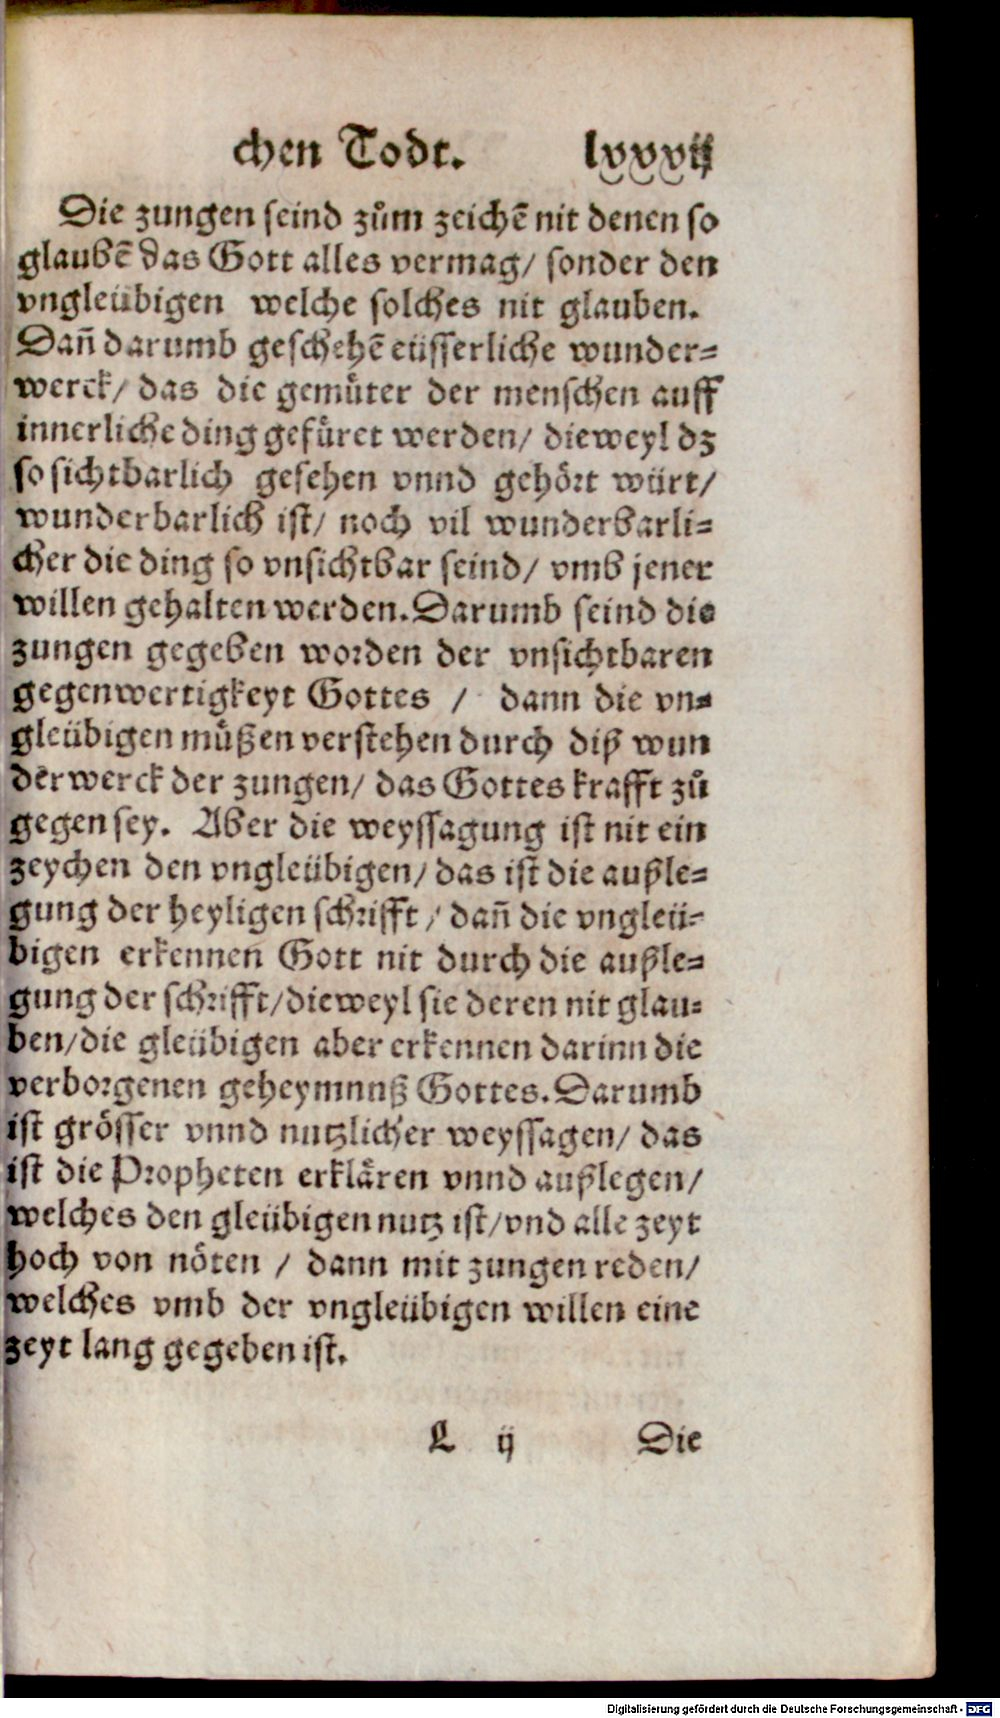 chen Todt. lxxxvij
Die zungen seind zům zeichē nit denen so
glaubē das Gott alles vermag/ sonder den
vngleübigen welche solches nit glauben.
Dañ darumb geschehē eüsserliche wunder-
werck/ das die gemüter der menschen auff
innerliche ding gefüret werden/ dieweyl dz
so sichtbarlich gesehen vnnd gehört würt/
wunderbarlich ist/ noch vil wunderbarli-
cher die ding so vnsichtbar seind/ vmb jener
willen gehalten werden. Darumb seind die
zungen gegeben worden der vnsichtbaren
gegenwertigkeyt Gottes / dann die vn-
gleübigen müßen verstehen durch diß wun
derwerck der zungen/ das Gottes krafft zů
gegen sey. Aber die weyssagung ist nit ein
zeychen den vngleübigen/ das ist die außle-
gung der heyligen schrifft / dañ die vngleü-
bigen erkennen Gott nit durch die außle-
gung der schrifft/ dieweyl sie deren nit glau-
ben/ die gleübigen aber erkennen darinn die
verborgenen geheymnuß Gottes. Darumb
ist grösser vnnd nutzlicher weyssagen/ das
ist die Propheten erklären vnnd außlegen/
welches den gleübigen nutz ist/ vnd alle zeyt
hoch von nöten / dann mit zungen reden/
welches vmb der vngleübigen willen eine
zeyt lang gegeben ist.
L ij Die
Digitalisierung gefördert durch die Deutsche Forschungsgemeinschaft - DFG